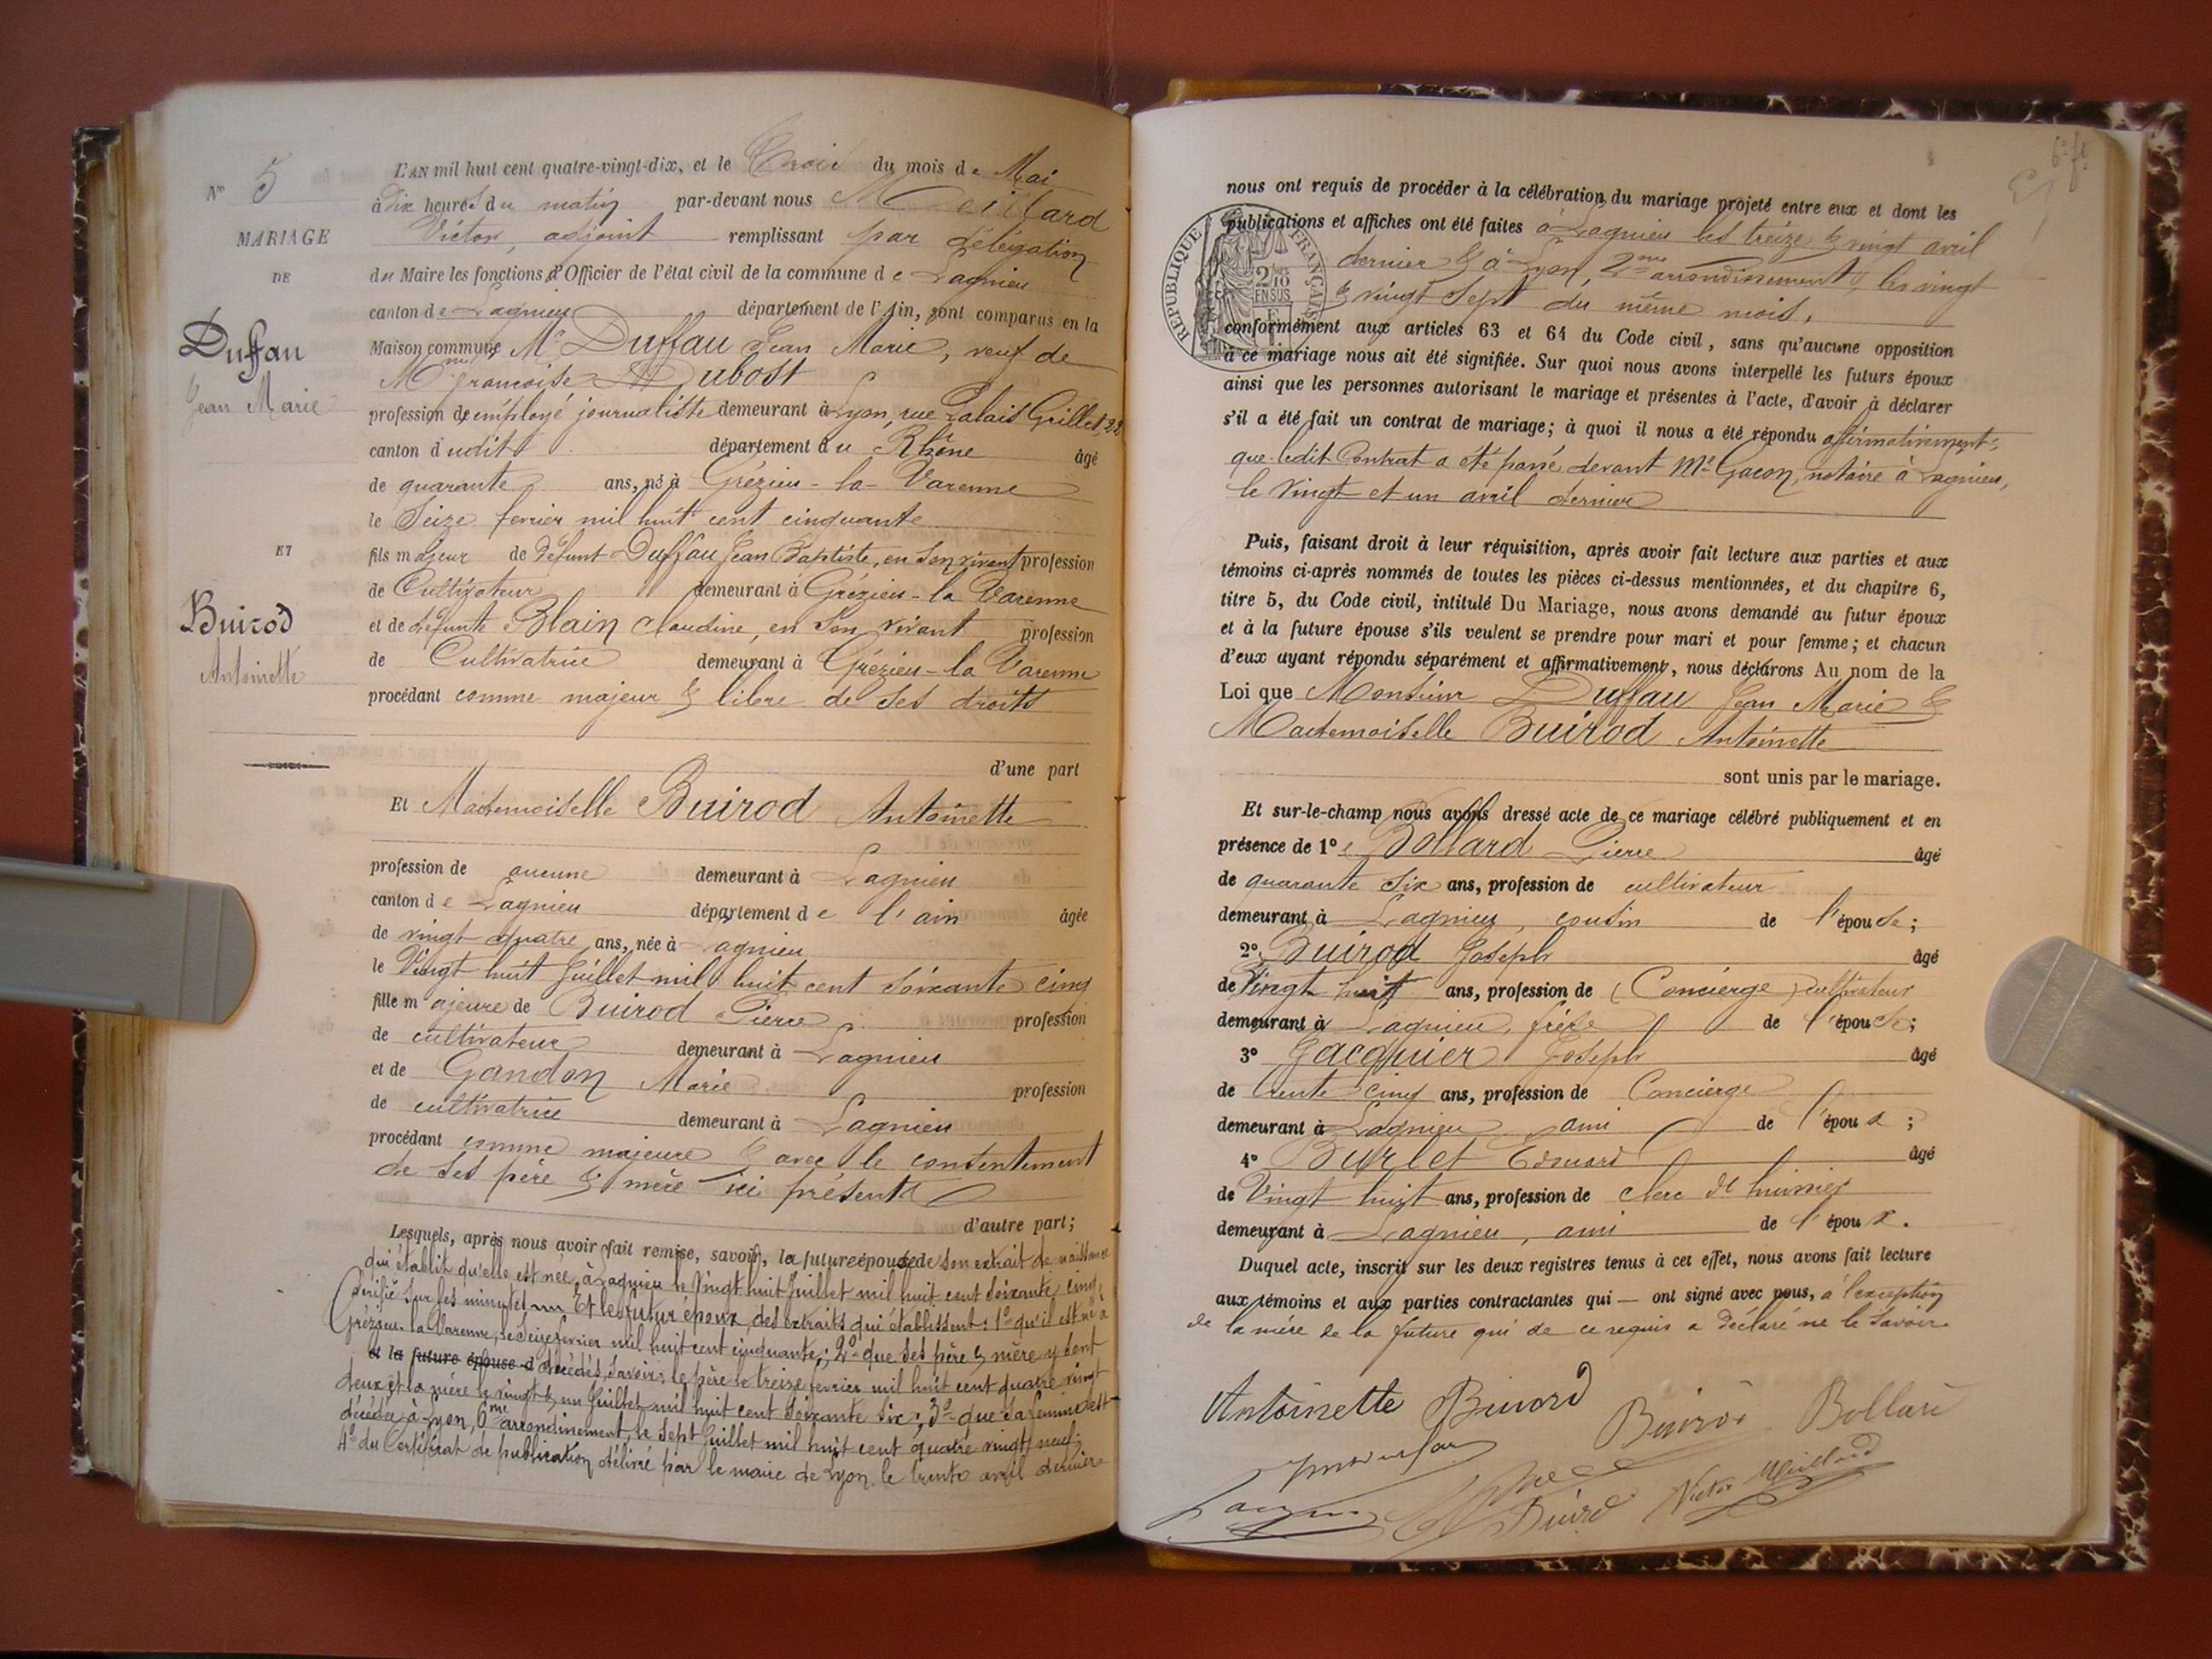 No 5
MARIAGE
DE
Duffau
Jean Marie
ET
Buirod
Antoinette
L'AN mil huit cent quatre-vingt-dix, et le Trois du mois de Mai
à Dix heures du matin par-devant nous Meillard
Victor, adjoint remplissant par délégation
du Maire les fonctions d'Officier de l'état civil de la commune de Lagnieu
canton de Lagnieu département de l'Ain, sont comparus en la
Maison commune Mr Duffau Jean Marie, veuf de
Mme françoise Dubost
profession de employé journaliste demeurant à Lyon, rue Palais Grillet, 22
canton dudit département du Rhône âgé
de quarante ans, né à Grézieu-la-Varenne
le Seize fevrier mil huit cent cinquante
fils majeur de défunt Duffau Jean Baptiste, en son vivant profession
de Cultivateur demeurant à Grézieu-la Varenne
et de défunte Blain Claudine, en son vivant profession
de Cultivatrice demeurant à Grézieu-la Varenne
procédant comme majeur & libre de ses droits
d'une part
Et Mademoiselle Buirod Antoinette
profession de aucune demeurant à Lagnieu
canton de Lagnieu département de l'ain âgée
de vingt quatre ans, née à Lagnieu
le Vingt huit Juillet mil huit cent soixante cinq
fille majeure de Buirod Pierre profession
de cultivateur demeurant à Lagnieu
et de Gandon Marie profession
de cultivatrice demeurant à Lagnieu
procédant comme majeure & avec le consentement
de ses père & mère ici présents
d'autre part;
Lesquels, après nous avoir fait remise, savoir, la future épouse de son extrait de naissance
qui établit qu'elle est née, à Lagnieu le Vingt huit Juillet mil huit cent soixante cinq
vérifié sur les minutes Et le futur epoux, des extraits qui établissent: 1° qu'il est né à
Grézieu-la Varenne, le Seize fevrier mil huit cent cinquante; 2° que ses père & mère y sont
et la future épouse d décédés, savoir: le père le treize fevrier mil huit cent quatre vingt
deux et la mère le vingt & un Juillet mil huit cent soixante six; 3° que sa femme est
décédée à Lyon, 6me arrondissement, le sept Juillet mil huit cent quatre vingt neuf;
4° du Certificat de publication délivré par le maire de Lyon le trente avril dernier
6e ft
RÉPUBLIQUE FRANÇAISE
2/10
EN SUS
nous ont requis de procéder à la célébration du mariage projeté entre eux et dont les
publications et affiches ont été faites à Lagnieu les treize & vingt avril
dernier & à Lyon, 2me arrondissement, les vingt
& vingt sept du même mois,
conformément aux articles 63 et 64 du Code civil, sans qu'aucune opposition
à ce mariage nous ait été signifiée. Sur quoi nous avons interpellé les futurs époux
ainsi que les personnes autorisant le mariage et présentes à l'acte, d'avoir à déclarer
s'il a été fait un contrat de mariage; à quoi il nous a été répondu affirmativement:
que ledit Contrat a été passé devant Me Gacon, notaire à Lagnieu,
le Vingt et un avril dernier
Puis, faisant droit à leur réquisition, après avoir fait lecture aux parties et aux
témoins ci-après nommés de toutes les pièces ci-dessus mentionnées, et du chapitre 6,
titre 5, du Code civil, intitulé Du Mariage, nous avons demandé au futur époux
et à la future épouse s'ils veulent se prendre pour mari et pour femme; et chacun
d'eux ayant répondu séparément et affirmativement, nous déclarons Au nom de la
Loi que Monsieur Duffau Jean Marie &
Mademoiselle Buirod Antoinette
sont unis par le mariage.
Et sur-le-champ nous avons dressé acte de ce mariage célébré publiquement et en
présence de 1° Bollard Pierre âgé
de quarante six ans, profession de cultivateur
demeurant à Lagnieu, cousin de l'épouse;
2° Buirod Joseph âgé
de Vingt huit ans, profession de (Concierge) cultivateur
demeurant à Lagnieu, frère de l'épouse;
3° Jacquier Joseph âgé
de trente cinq ans, profession de Concierge
demeurant à Lagnieu ami de l'époux;
4° Burlet Edouard âgé
de Vingt huit ans, profession de clerc d'huissier
demeurant à Lagnieu, ami de l'époux.
Duquel acte, inscrit sur les deux registres tenus à cet effet, nous avons fait lecture
aux témoins et aux parties contractantes qui — ont signé avec nous, à l'exception
de la mère de la future qui de ce requis a déclaré ne le savoir.
Antoinette Buirod Buirod Bollard
Victor Meillard